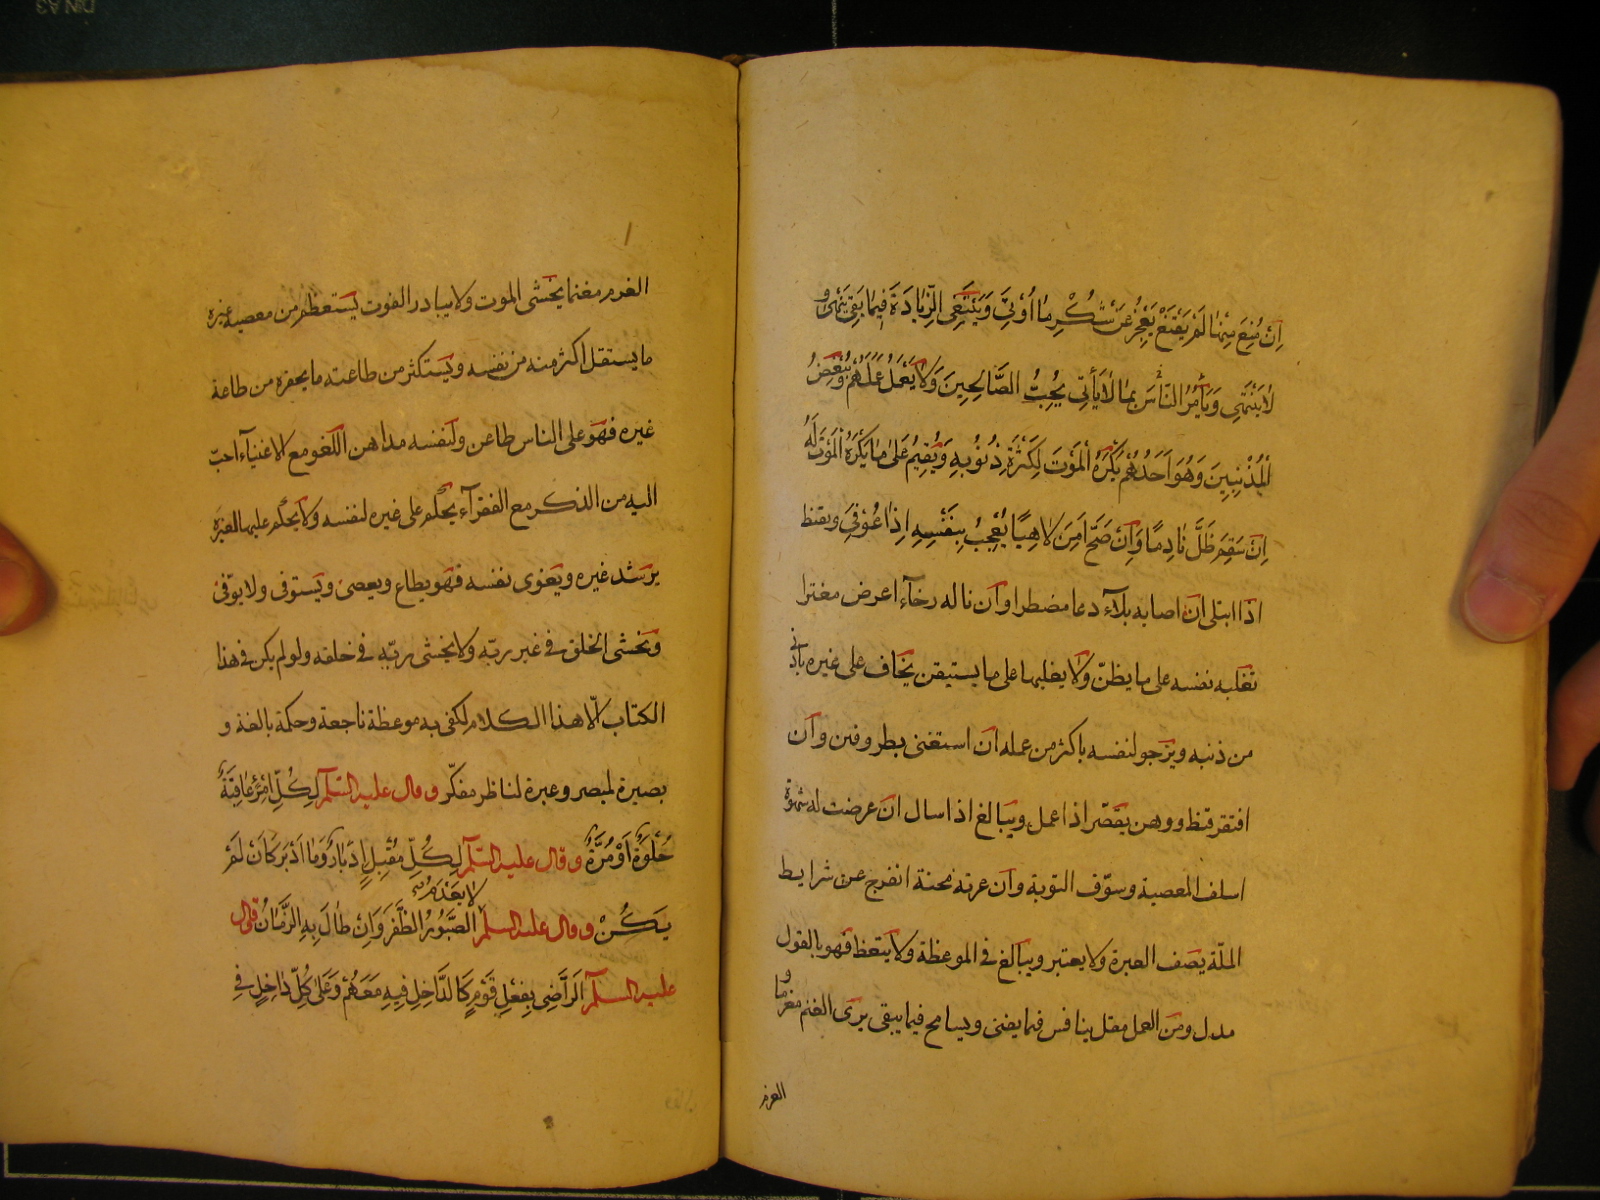 اِنْ مُنِعَ مِنْهَا لَمْ يَقْنَعْ يَعْجِزُ عَنْ شُكْرِ مَا اُوْتِيَ وَيَبْتَغِي الزِّيَادَةَ فِيمَا بَقِيَ يَنْهٰى وَ
لَا يَنْتَهِي وَيَأْمُرُ النَّاسَ بِمَا لَا يَأْتِي يُحِبُّ الصَّالِحِينَ وَلَا يَعْمَلُ عَمَلَهُمْ وَيُبْغِضُ
الْمُذْنِبِينَ وَهُوَ اَحَدُهُمْ يَكْرَهُ الْمَوْتَ لِكَثْرَةِ ذُنُوبِهِ وَيُقِيمُ عَلَى مَا يَكْرَهُ الْمَوْتَ لَهُ
اِنْ سَقِمَ ظَلَّ نَادِمًا وَاِنْ صَحَّ اَمِنَ لَاهِيًا يُعْجِبُ بِنَفْسِهِ اِذَا عُوْفِيَ ويقنط
اذا ابتلى ان اصابه بلاء دعا مضطرا وان ناله رخآء اعرض مغترا
تغلبه نفسه على ما يظنّ ولا يغلبها على ما يستيقن يخاف على غيره بادنى
من ذنبه ويرجو لنفسه باكثر من عمله ان استغنى بطر وفتن وان
افتقر قنط ووهن يقصّر اذا عمل ويبالغ اذا سال ان عرضت له شهوة
اسلف المعصية وسوّف التوبة وان عرته محنة انفرج عن شرايط
الملّة يصف العبرة ولا يعتبر ويبالغ فى الموعظة ولا يتعظ فهو بالقول
مدل ومن العمل مقل ينافس فيما يفنى ويسامح فيما يبقى يرى الغنم مغرما و
الغرم
الغرم مغنما يخشى الموت ولا يبادر الفوت يستعظم من معصية غيره
ما يستقل اكثر منه من نفسه ويستكثر من طاعته ما يحقره من طاعة
غيره فهو على الناس طاعن ولنفسه مداهن اللغو مع الاغنيآء احبّ
اليه من الذكر مع الفقرآء يحكم على غيره لنفسه ولا يحكم عليها لغيره
يرشد غيره ويغوى نفسه فهو يطاع ويعصى ويستوفى ولا يوفى
ويخشى الخلق فى غير ربّه ولا يخشى ربّه فى خلقه ولو لم يكن فى هذا
الكتاب الّا هذا الكلام لكفى به موعظة ناجعة وحكمة بالغة و
بصيرة لمبصر وعبرة لناظر مفكّر وقال عليه السّلم لِكُلِّ امْرِئٍ عَاقِبَةٌ
حُلْوَةٌ اَوْ مُرَّةٌ وقال عليه السّلم لِكُلِّ مُقْبِلٍ اِدْبَارٌ وَمَا اَدْبَرَ كَاَنْ لَمْ
يَكُنْ وقال عليه السلم لَا يَعْدَمُ الصَّبُورُ الظَّفَرَ وَاِنْ طَالَ بِهِ الزَّمَانُ قال
عليه السلم اَلرَّاضِي بِفِعْلِ قَوْمٍ كَالدَّاخِلِ فِيهِ مَعَهُمْ وَعَلَى كُلِّ دَاخِلٍ فِي